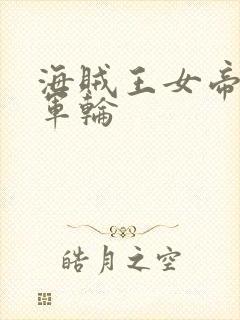 海贼王女帝
军輪
皓月之空